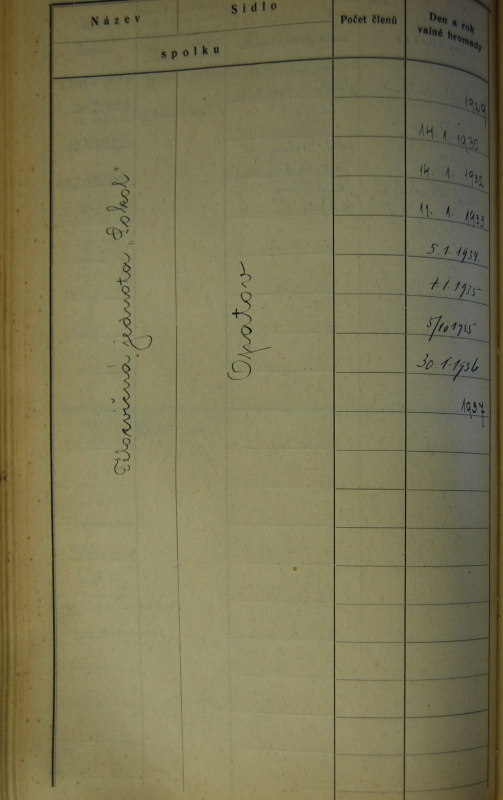 Název
Sídlo
spolku
Počet členů
Den a rok
valné hromady
Tělocvičná jednota „Sokol"
Opatov
1929
14. 1. 1930
14. 1. 1932
11. 1. 1933
5. 1. 1934
7. 1. 1935
5/10 1935
30. 1. 1936
1937